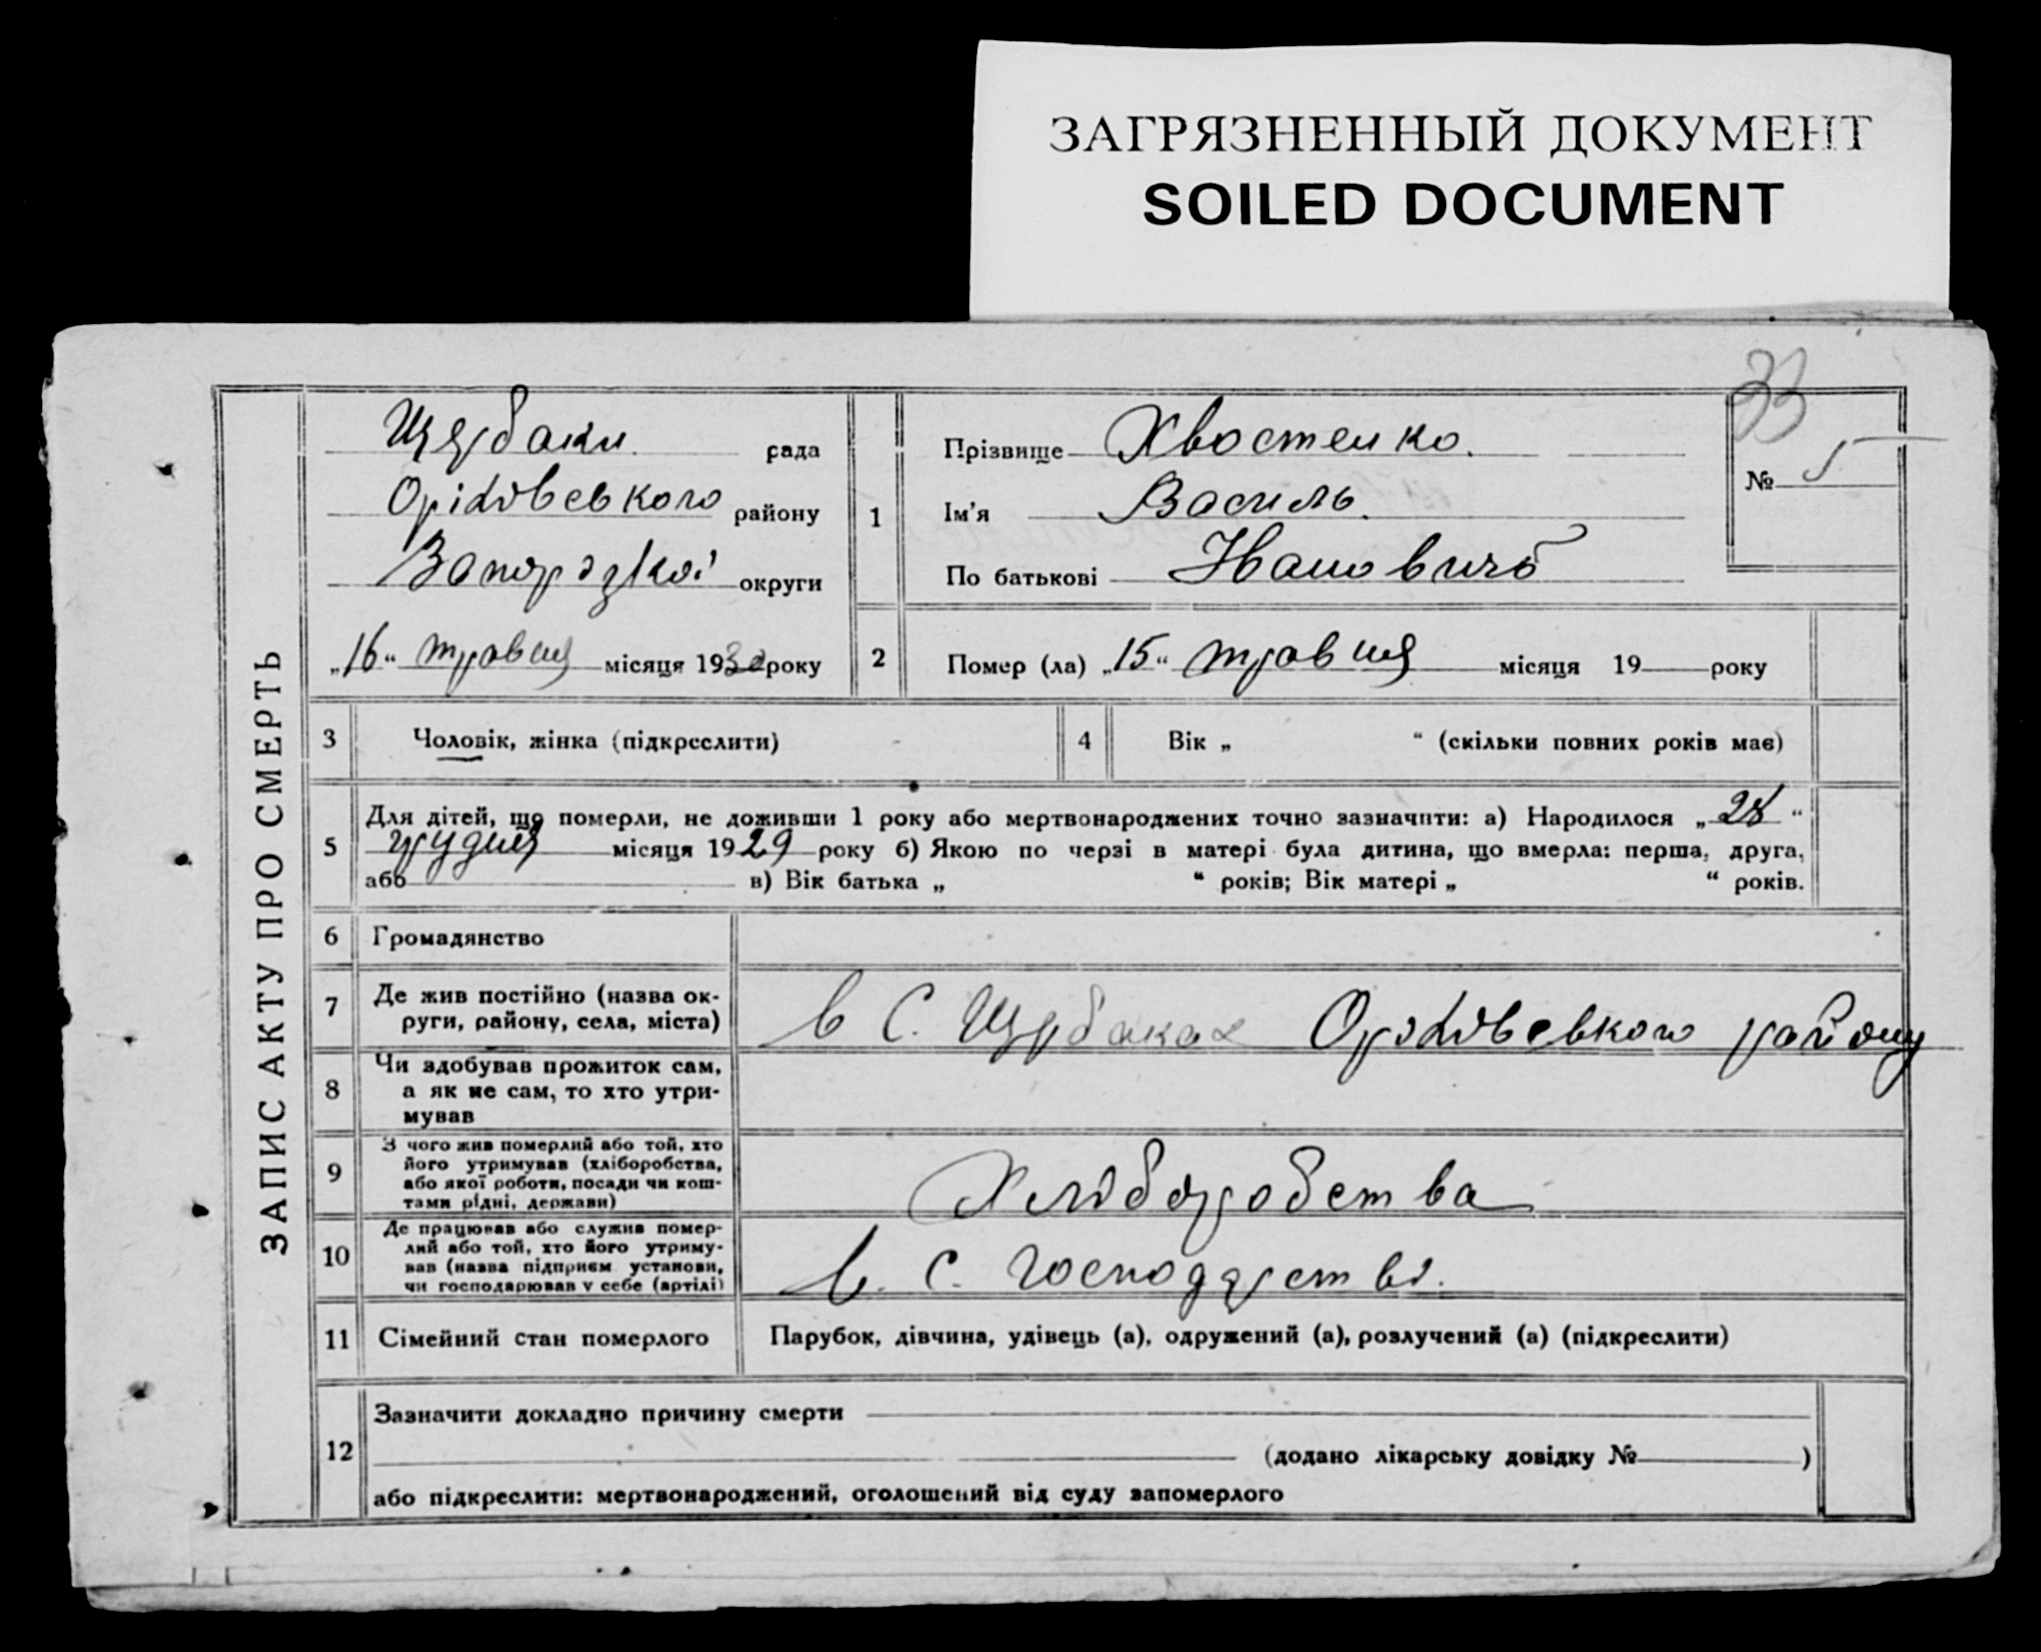 ЗАГРЯЗНЕННЫЙ ДОКУМЕНТ
SOILED DOCUMENT
33
ЗАПИС АКТУ ПРО СМЕРТЬ
Щербаки рада
Оріхівського району
Запорізької округи
„16“ травня місяця 1930 року
1
Прізвище Хвостенко.
Ім'я Василь.
По батькові Іванович
№ 5
2
Помер (ла) „15“ травня місяця 19 року
3 Чоловік, жінка (підкреслити)
4 Вік „ “ (скільки повних років має)
5
Для дітей, що померли, не доживши 1 року або мертвонароджених точно зазначити: а) Народилося „28“
грудня місяця 1929 року б) Якою по черзі в матері була дитина, що вмерла: перша, друга,
або в) Вік батька „ “ років; Вік матері „ “ років.
6 Громадянство
7
Де жив постійно (назва ок-
руги, району, села, міста)
в С. Щербаках Оріхівського району
8
Чи здобував прожиток сам,
а як не сам, то хто утри-
мував
9
З чого жив померлий або той, хто
його утримував (хліборобства,
або якої роботи, посади чи кош-
тами рідні, держави)
Хліборобства
10
Де працював або служив помер-
лий або той, хто його утриму-
вав (назва підприєм установи,
чи господарював у себе (артілі)
в. С. господарстві.
11 Сімейний стан померлого
Парубок, дівчина, удівець (а), одружений (а), розлучений (а) (підкреслити)
12
Зазначити докладно причину смерти
(додано лікарську довідку № )
або підкреслити: мертвонароджений, оголошений від суду запомерлого